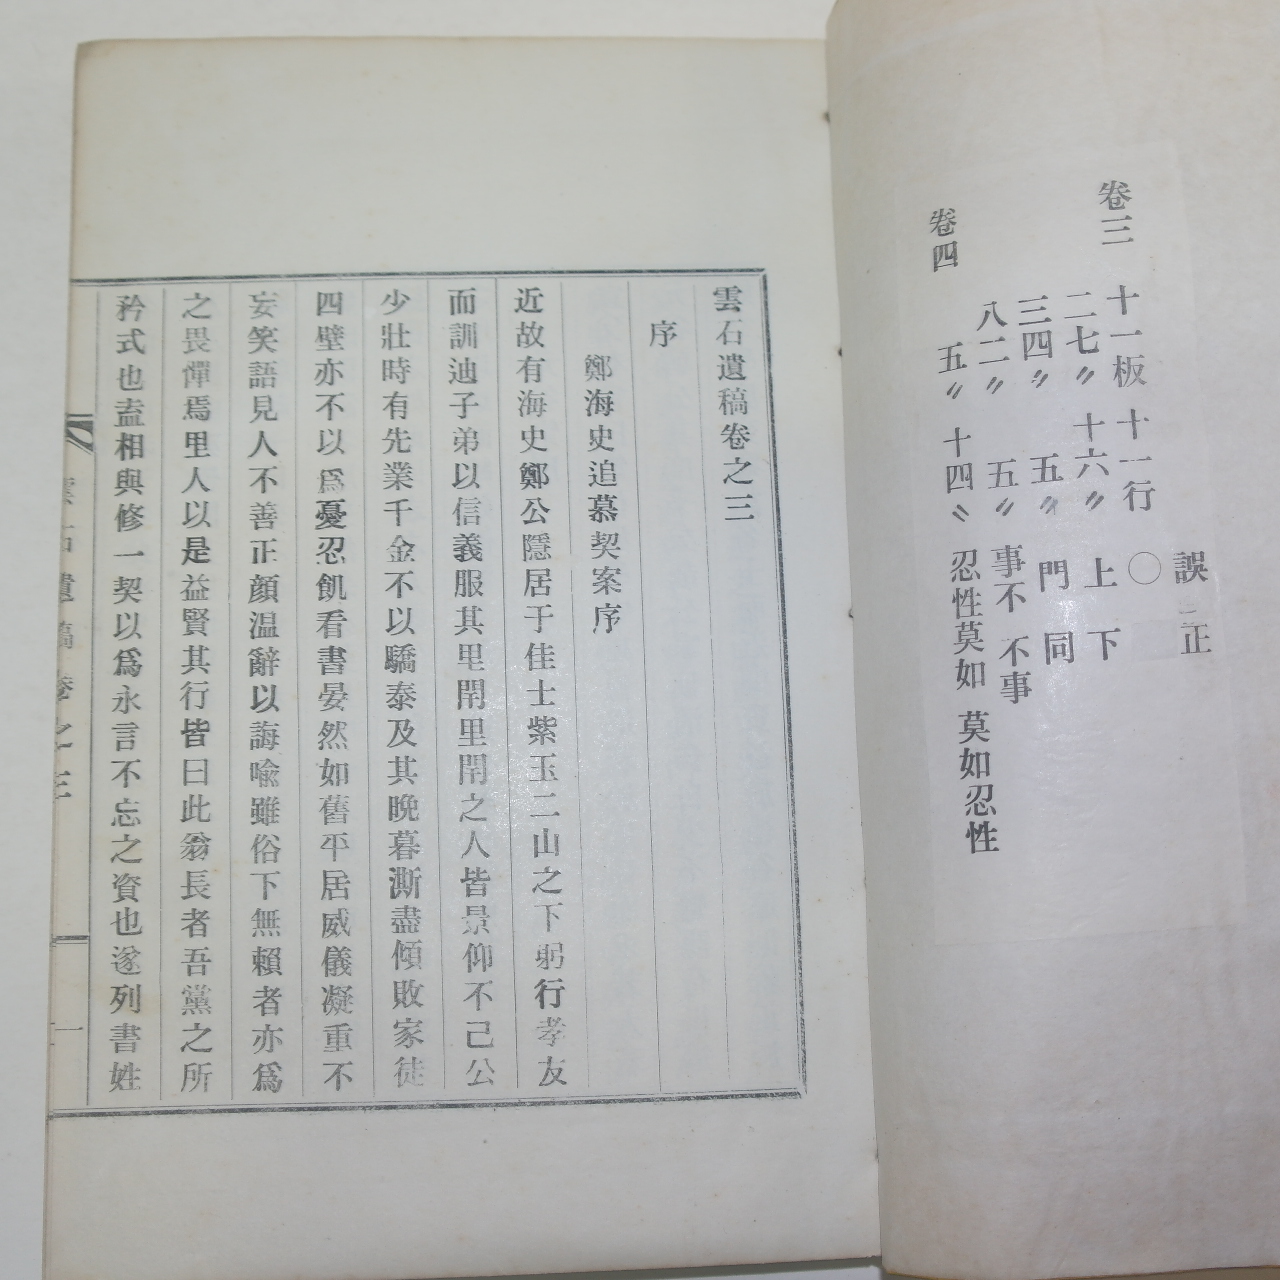 誤 正
卷三 十一板 十一行 〇
二七〃 十六〃 上 下
三四〃 五〃 門 同
八二〃 五〃 事不 不事
卷四 五〃 十四〃 忍性莫如 莫如忍性
雲石遺稿卷之三
序
鄭海史追慕契案序
近故有海史鄭公隱居于佳士紫玉二山之下躬行孝友
而訓迪子弟以信義服其里閈里閈之人皆景仰不已公
少壯時有先業千金不以驕泰及其晩暮澌盡傾敗家徒
四壁亦不以爲憂忍飢看書晏然如舊平居威儀凝重不
妄笑語見人不善正顔温辭以誨喩雖俗下無賴者亦爲
之畏憚焉里人以是益賢其行皆曰此翁長者吾黨之所
矜式也盍相與修一契以爲永言不忘之資也遂列書姓
雲石遺稿卷之三 一